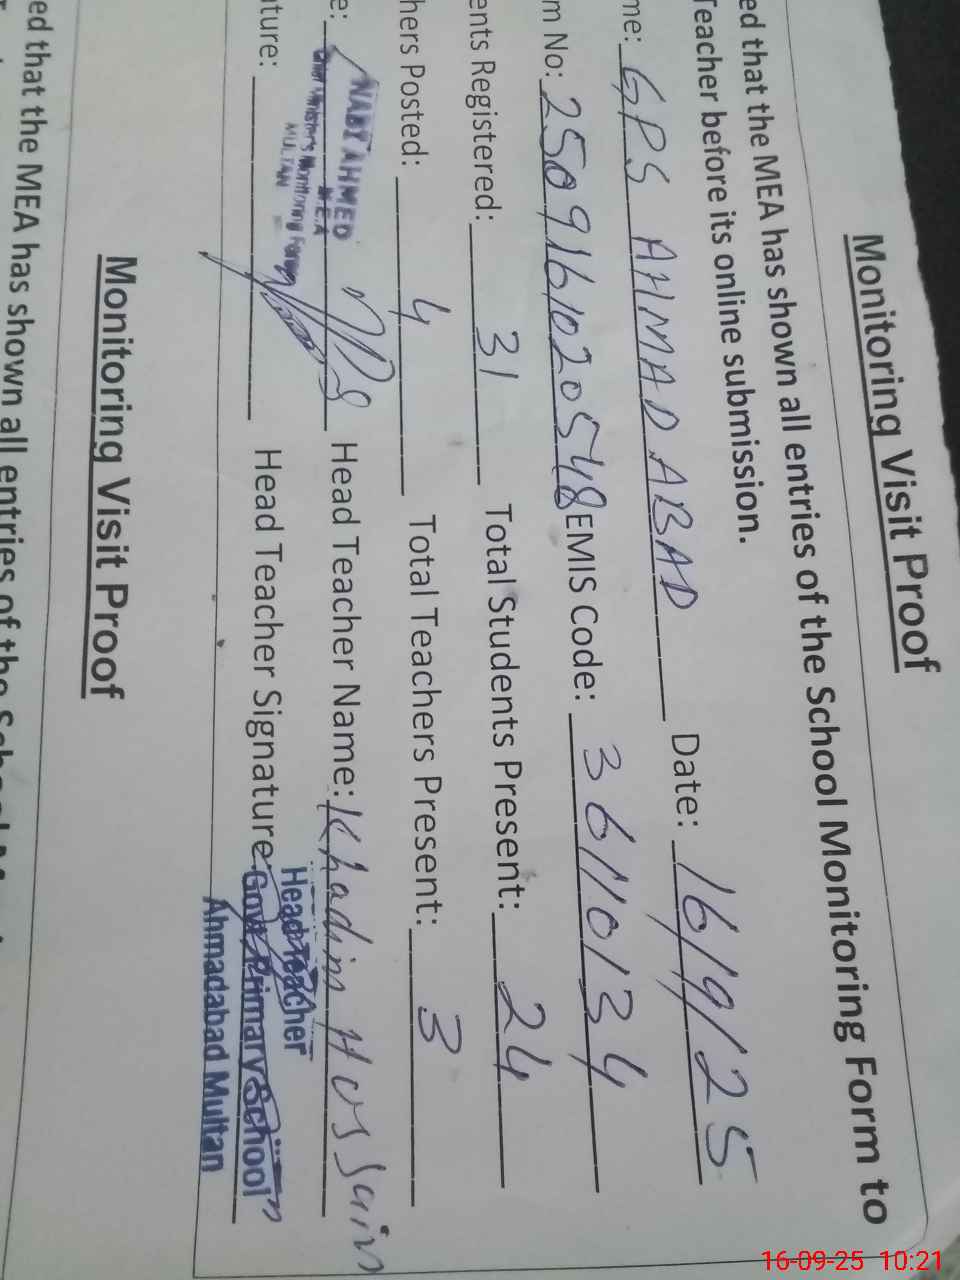 Monitoring Visit Proof
ed that the MEA has shown all entries of the School Monitoring Form to
Teacher before its online submission.
me: GPS AHMAD ABAD Date: 16/9/25
m No: 2509161020548 EMIS Code: 36110134
ents Registered: 31 Total Students Present: 24
hers Posted: 4 Total Teachers Present: 3
e: Head Teacher Name: Khadim Hussain
NABI AHMED
M.E.A
Chief Minister's Monitoring Force
MULTAN
ture: Head Teacher Signature:
Head Teacher
Govt Primary School
Ahmadabad Multan
Monitoring Visit Proof
ed that the MEA has shown all entries of the
16-09-25 10:21